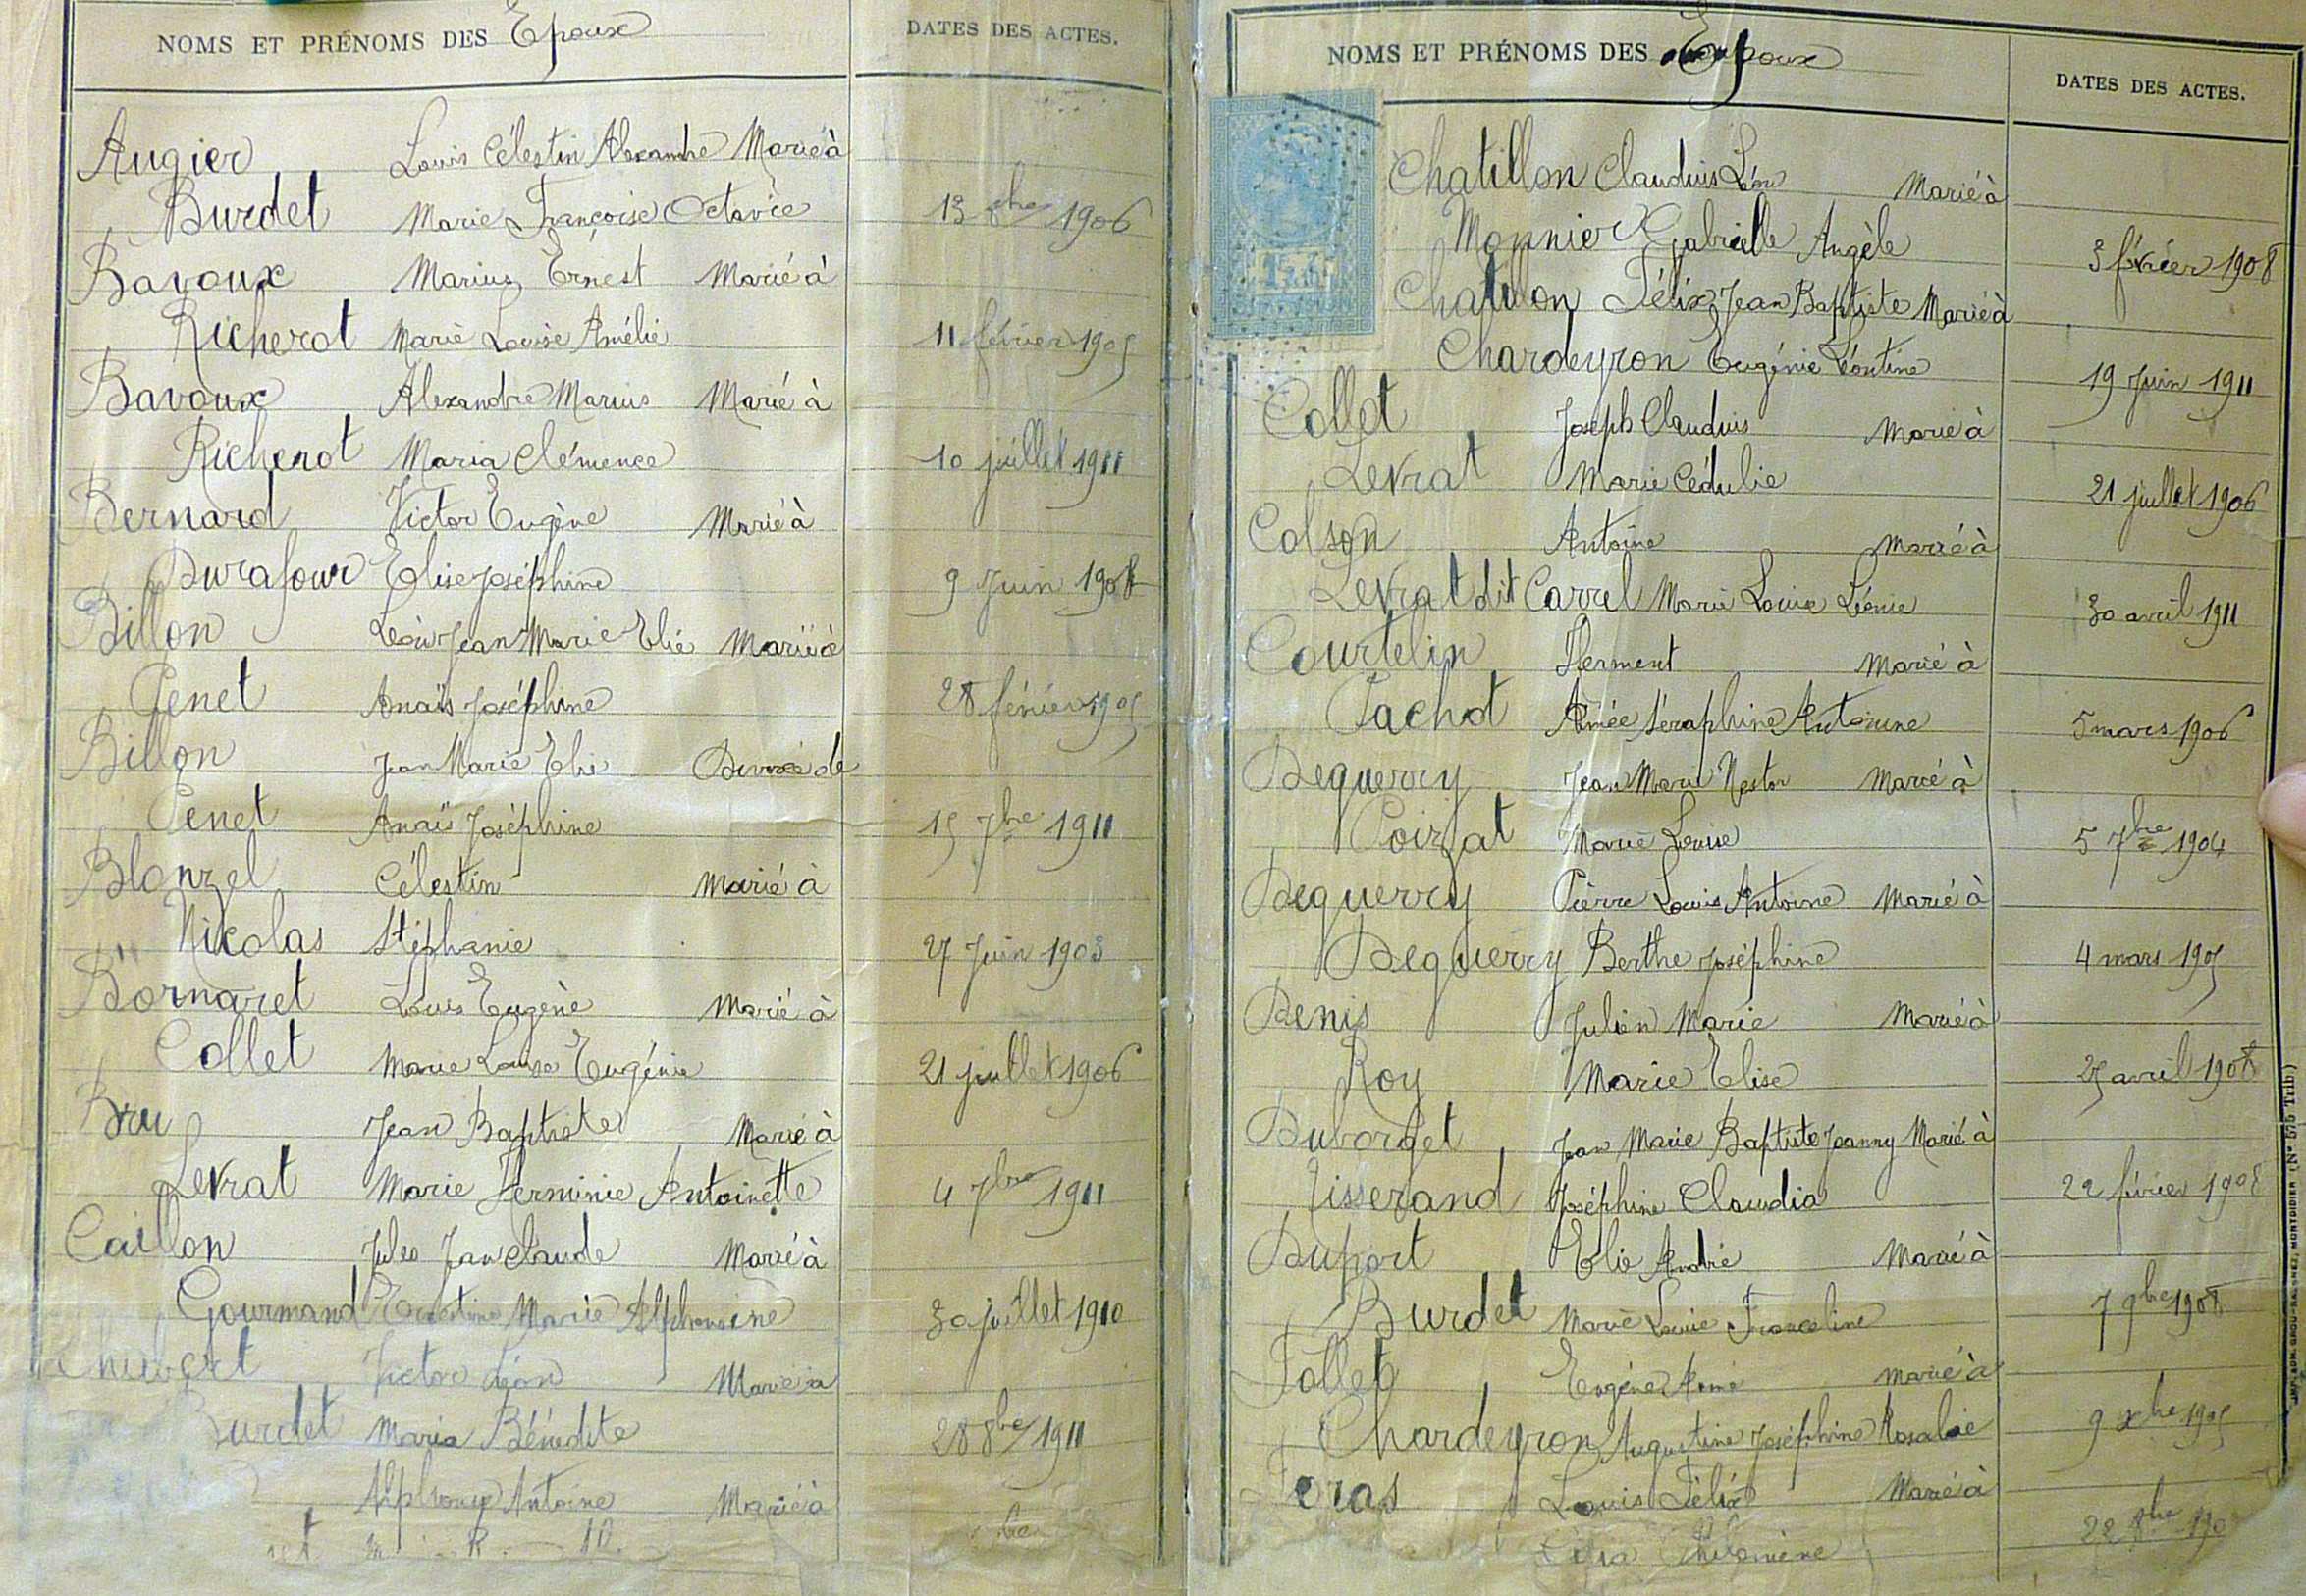 NOMS ET PRÉNOMS DES Epoux DATES DES ACTES.
Augier Louis Célestin Alexandre Marié à
Burdet Marie Françoise Octavie 13 1906
Bavoux Marius Ernest Marié à
Richerot Marie Louise Amélie 11 février 1905
Bavoux Alexandre Marius Marié à
Richerot Maria Clémence 10 juillet 1911
Bernard Victor Eugène Marié à
Durafour Elise Joséphine 9 Juin 1908
Billon Léon Jean Marie Elie Marié à
Penet Anaïs Joséphine 28 février 1905
Billon Jean Marie Elie Divorcé de
Penet Anaïs Joséphine 15 7bre 1911
Blonzel Célestin Marié à
Nicolas Stéphanie 27 Juin 1903
Bornaret Louis Eugène Marié à
Collet Marie Louise Eugénie 21 juillet 1906
Bru Jean Baptiste Marié à
Levrat Marie Herminie Antoinette 4 7bre 1911
Caillon Jules Jean Claude Marié à
Gourmand Ernestine Marie Alphonsine 30 juillet 1910
Victor Léon Marié à
Burdet Maria Bénédite 28 8bre 1911
Alphonse Antoine Marié à
NOMS ET PRÉNOMS DES Epoux DATES DES ACTES.
Chatillon Claudius Léon Marié à
Monnier Gabrielle Angèle 3 février 1908
Chatillon Félix Jean Baptiste Marié à
Chardeyron Eugénie Léontine 19 Juin 1911
Collet Joseph Claudius Marié à
Levrat Marie Cédulie 21 juillet 1906
Colson Antoine Marié à
Levrat dit Carrel Marie Louise Léonie 30 avril 1911
Courtelin Herment Marié à
Pachot Aimée Séraphine Antonine 5 mars 1906
Deguerry Jean Marie Nestor Marié à
Poizat Marie Louise 5 7bre 1904
Deguerry Pierre Louis Antoine Marié à
Deguerry Berthe Joséphine 4 mars 1905
Denis Julien Marie Marié à
Roy Marie Elise 25 avril 1908
Duborget Jean Marie Baptiste Joanny Marié à
Tisserand Joséphine Claudia 22 février 1908
Duport Elie André Marié à
Burdet Marie Louise Franceline 7 9bre 1908
Follet Eugène Aimé Marié à
Chardeyron Augustine Joséphine Rosalie 9 xbre 1905
Feras Louis Félix Marié à
Philomène 22